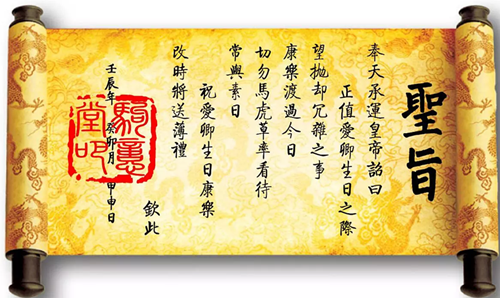 聖旨
奉天承運皇帝詔曰
正值愛卿生日之際
望拋却冗雜之事
康樂渡過今日
切勿馬虎草率看待
常與素日
祝愛卿生日康樂
改時將送薄禮
欽此
壬辰年 癸卯月 甲申日
堂印